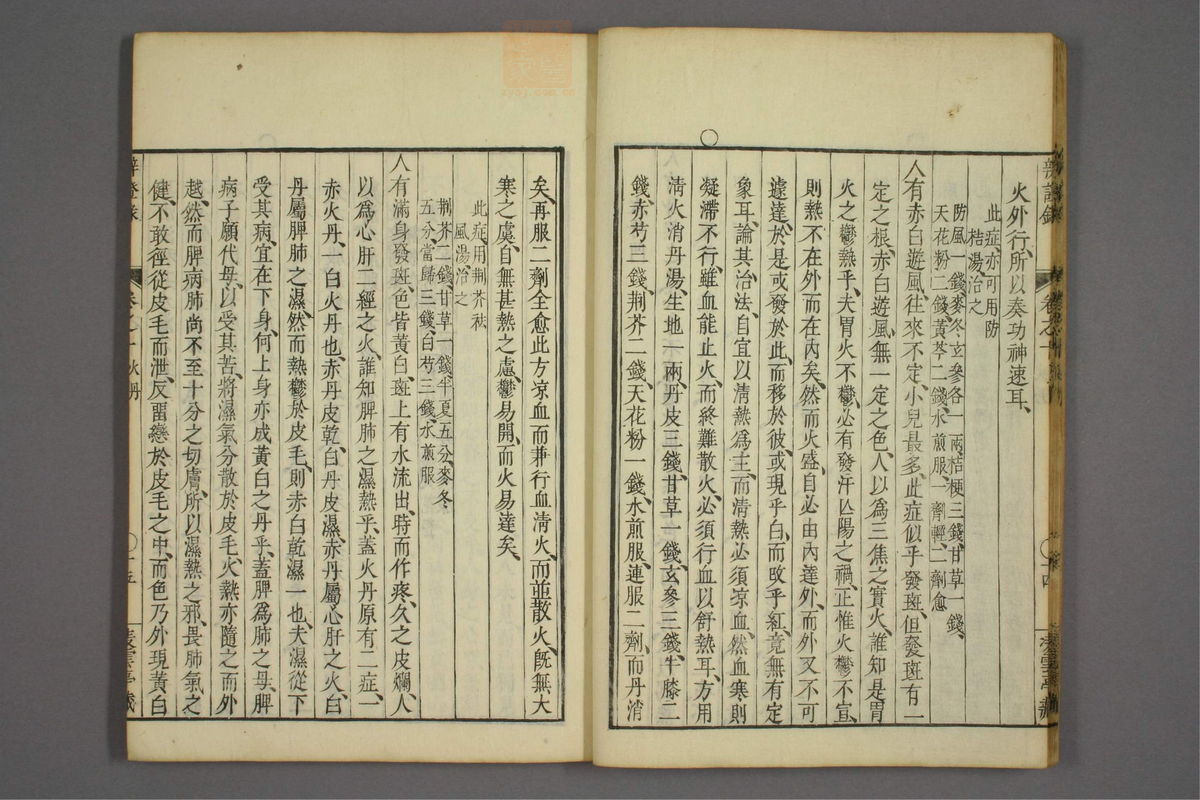 火外行、所以奏功神速耳、
此症、亦可用防
桔湯治之
防風一錢、麥冬、玄參各一兩、桔梗三錢、甘草一錢、
天花粉二錢、黃芩二錢、水煎服、一劑輕、二劑愈
人有赤白遊風、往來不定、小兒最多、此症似乎發斑、但發斑有一
定之根、赤白遊風、無一定之色、人以爲三焦之實火、誰知是胃
火之鬱熱乎、夫胃火不鬱、必有發汗亾陽之禍、正惟火鬱不宣、
則熱不在外而在內矣、然而火盛、自必由內達外、而外又不可
遽達、於是或發於此、而移於彼、或現乎白、而改乎紅、竟無有定
象耳、論其治法、自宜以淸熱爲主、而淸熱必須凉血、然血寒則
凝滯不行、雖血能止火、而終難散火、必須行血以舒熱耳、方用
淸火消丹湯、生地一兩、丹皮三錢、甘草一錢、玄參三錢、牛膝二
錢、赤芍三錢、荆芥二錢、天花粉一錢、水煎服、連服二劑、而丹消
矣、再服二劑全愈、此方凉血而兼行血、淸火、而並散火、旣無大
寒之虞、自無甚熱之慮、鬱易開、而火易達矣、
此症、用荆芥祛
風湯治之
荆芥二錢、甘草一錢、半夏五分、麥冬
五分、當歸三錢、白芍三錢、水煎服
人有滿身發斑、色皆黃白、斑上有水流出、時而作疼、久之皮爛、人
以爲心肝二經之火、誰知脾肺之濕熱乎、蓋火丹原有二症、一
赤火丹、一白火丹也、赤丹皮乾、白丹皮濕、赤丹屬心肝之火、白
丹屬脾肺之濕、然而熱鬱於皮毛、則赤白乾濕一也、夫濕從下
受、其病、宜在下身、何上身亦成黃白之丹乎、蓋脾爲肺之母、脾
病子願代母、以受其苦、將濕氣分散於皮毛、火熱亦隨之而外
越、然而脾病肺尚不至十分之切膚、所以濕熱之邪、畏肺氣之
健、不敢徑從皮毛而泄、反畱戀於皮毛之中、而色乃外現黃白